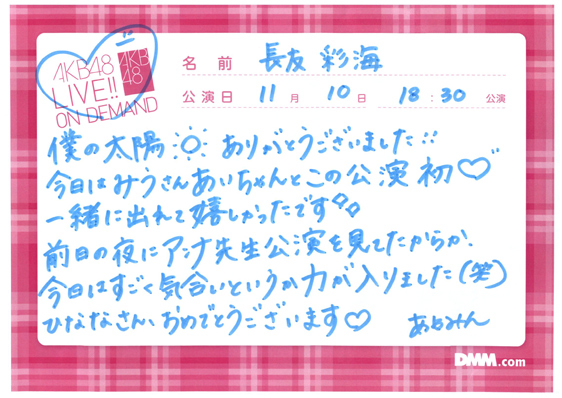 10
AKB48
LIVE!!
ON DEMAND
AKB
48
名前 長友 彩海
公演日 11月 10日 18:30 公演
僕の太陽 ありがとうございました!!
今日はみうさんあいちゃんとこの公演 初♡
一緒に出れて嬉しかったです
前日の夜にアンナ先生公演を見てたからか、
今日はすごく気合いというか力が入りました(笑)
ひななさん、おめでとうございます♡
あやみん
DMM.com